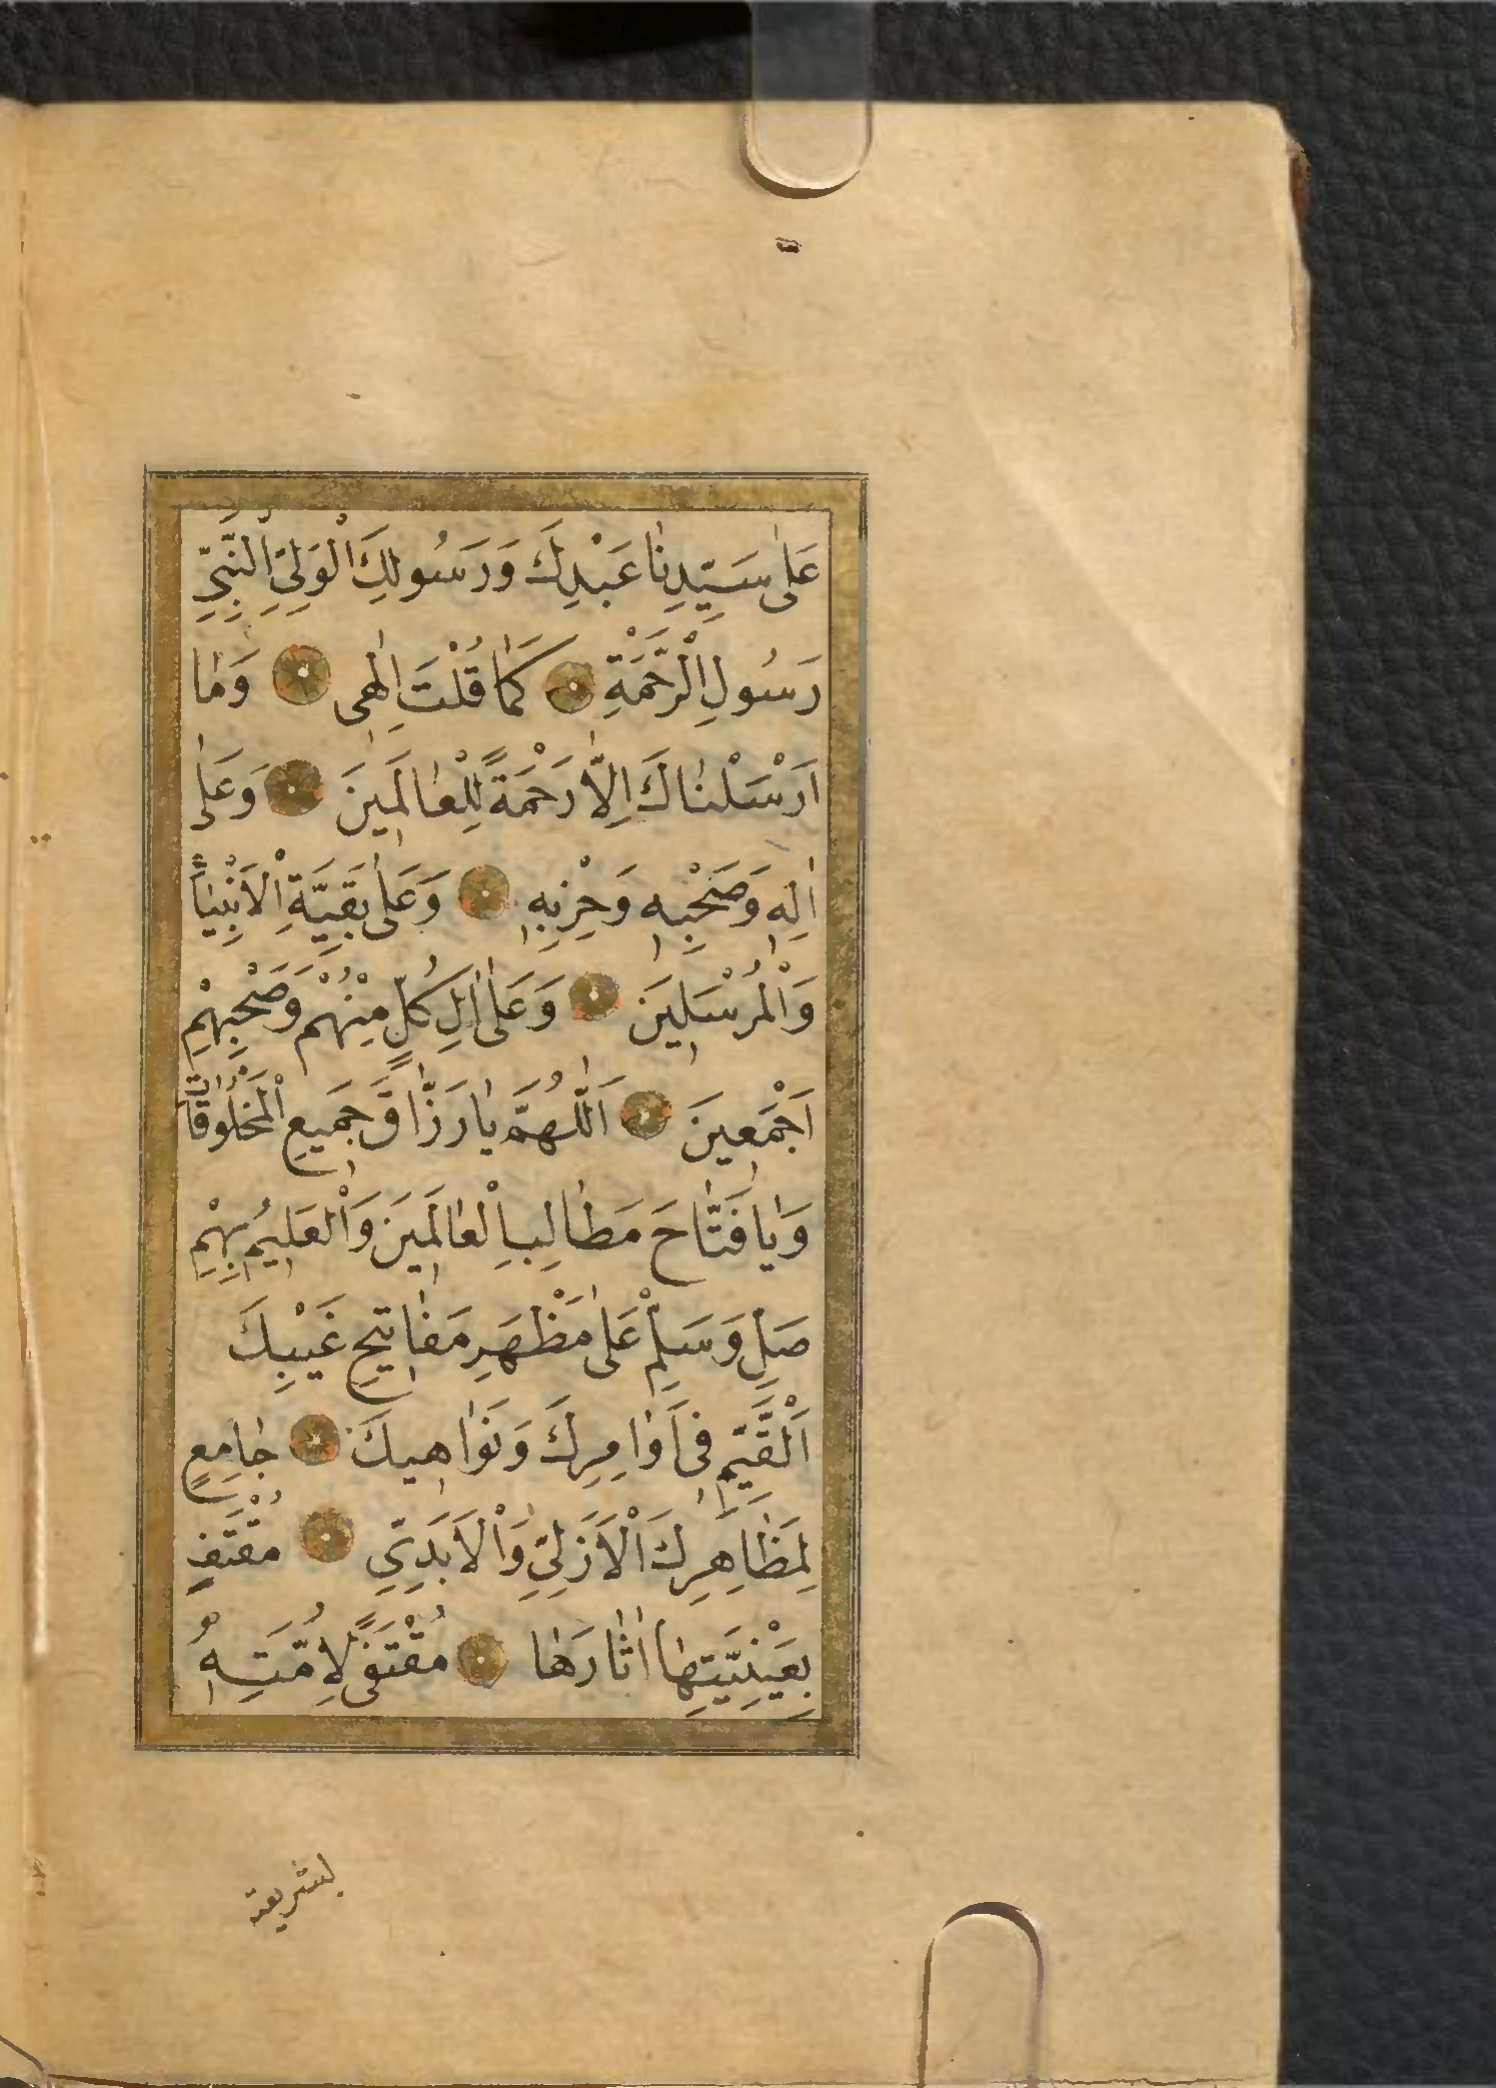 عَلٰى سَيِّدِنٰا عَبْدِكَ وَرَسُولِكَ الْوَلِيِّ النَّبِيِّ
رَسُولِ الْرَّحْمَةِ كَمٰا قُلْتَ اِلٰهى وَمٰا
اَرْسَلْنٰاكَ اِلّٰا رَحْمَةً لِلْعٰالَمِينَ وَعَلٰى
اٰلِهِ وَصَحْبِهِ وَحِزْبِهِ وَعَلٰى بَقِيَّةِ الْاَنْبِيٰاۤءِ
وَالْمُرْسَلِينَ وَعَلٰى اٰلِ كُلٍّ مِنْهُمْ وَصَحْبِهِمْ
اَجْمَعِينَ اَللّٰهُمَّ يٰا رَزّٰاقَ جَمِيعِ الْمَخْلُوقٰاتِ
وَيٰا فَتّٰاحَ مَطٰالِبِ الْعٰالَمِينَ وَالْعَلِيمُ بِهِمْ
صَلِّ وَسَلِّمْ عَلٰى مَظْهَرِ مَفٰاتِيحِ غَيْبِكَ
اَلْقَيِّمِ فى اَوٰامِرِكَ وَنَوٰاهِيكَ جٰامِعٍ
لِمَظٰاهِرِكَ الْاَزَلِيِّ وَالْاَبَدِيِّ مُقْتَفٍ
بِعَيْنِيَّتِهٰا اٰثٰارَهٰا مُقْتَفًى لِاُمَّتِهِ
لشريعة